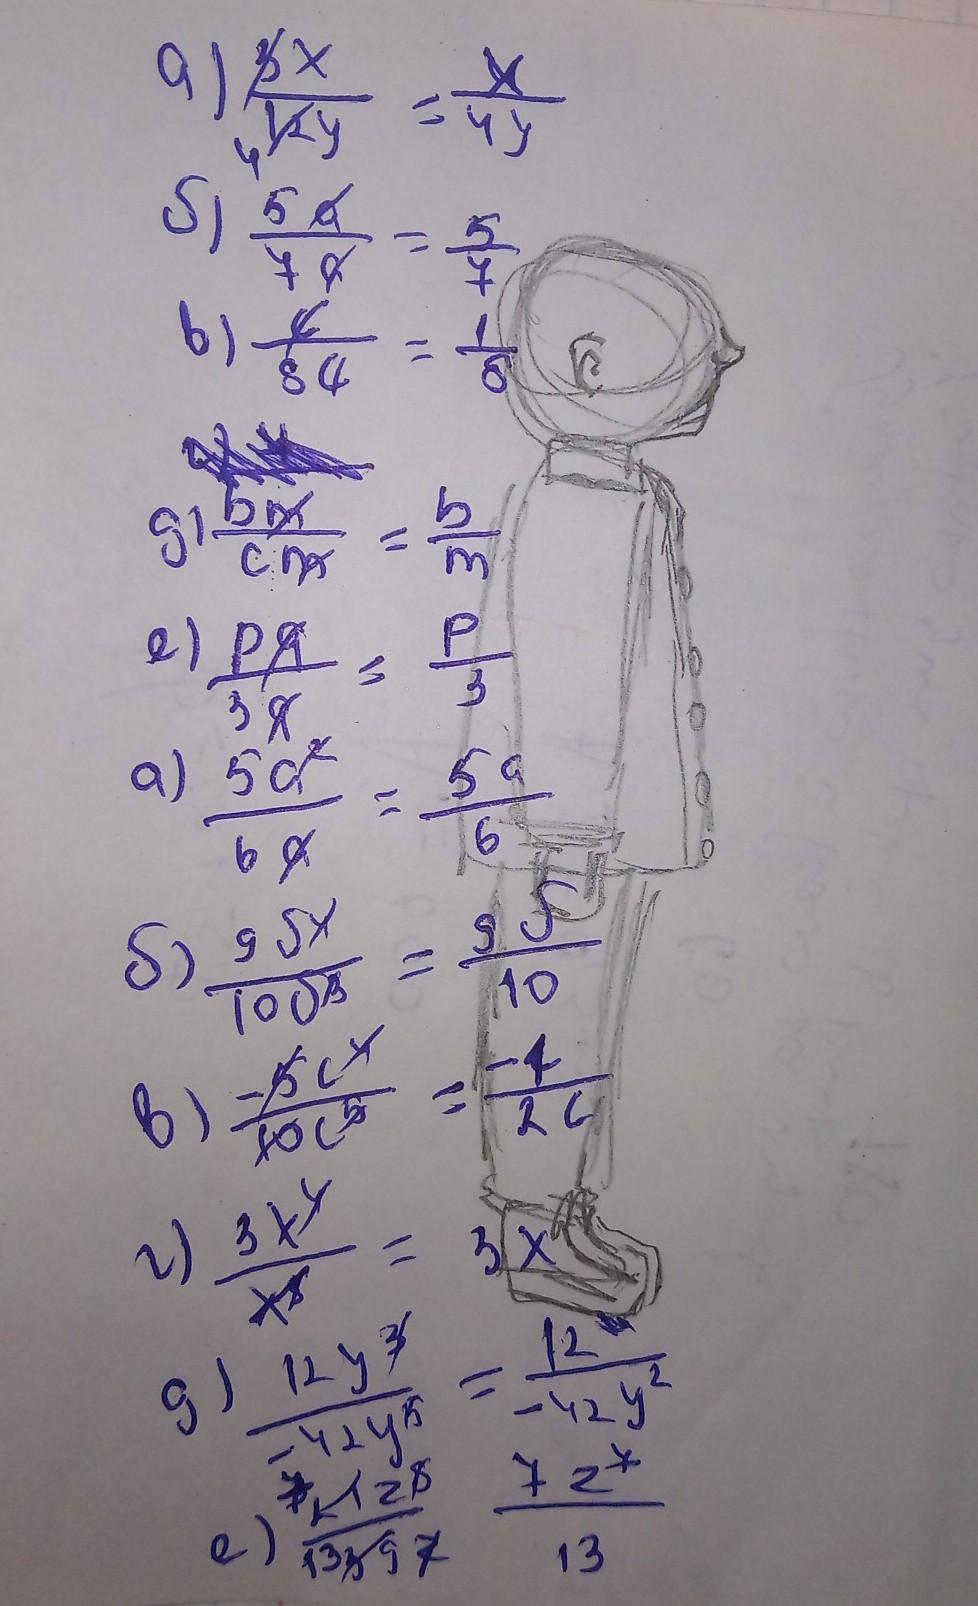 а) 3x/12y 4 = x/4y
б) 5a/7a = 5/7
в) c/8c = 1/8
д) bm/cm = b/m
е) pq/3q = p/3
а) 5a²/6a = 5a/6
б) 10 = 9б/10
в) -5c⁴/10c⁵ = -1/2c
г) 3x⁴/x³ = 3x
д) 12y³/-42y⁵ = 12/-42y²
е) 7 21z⁸/13 39z 7z⁷/13